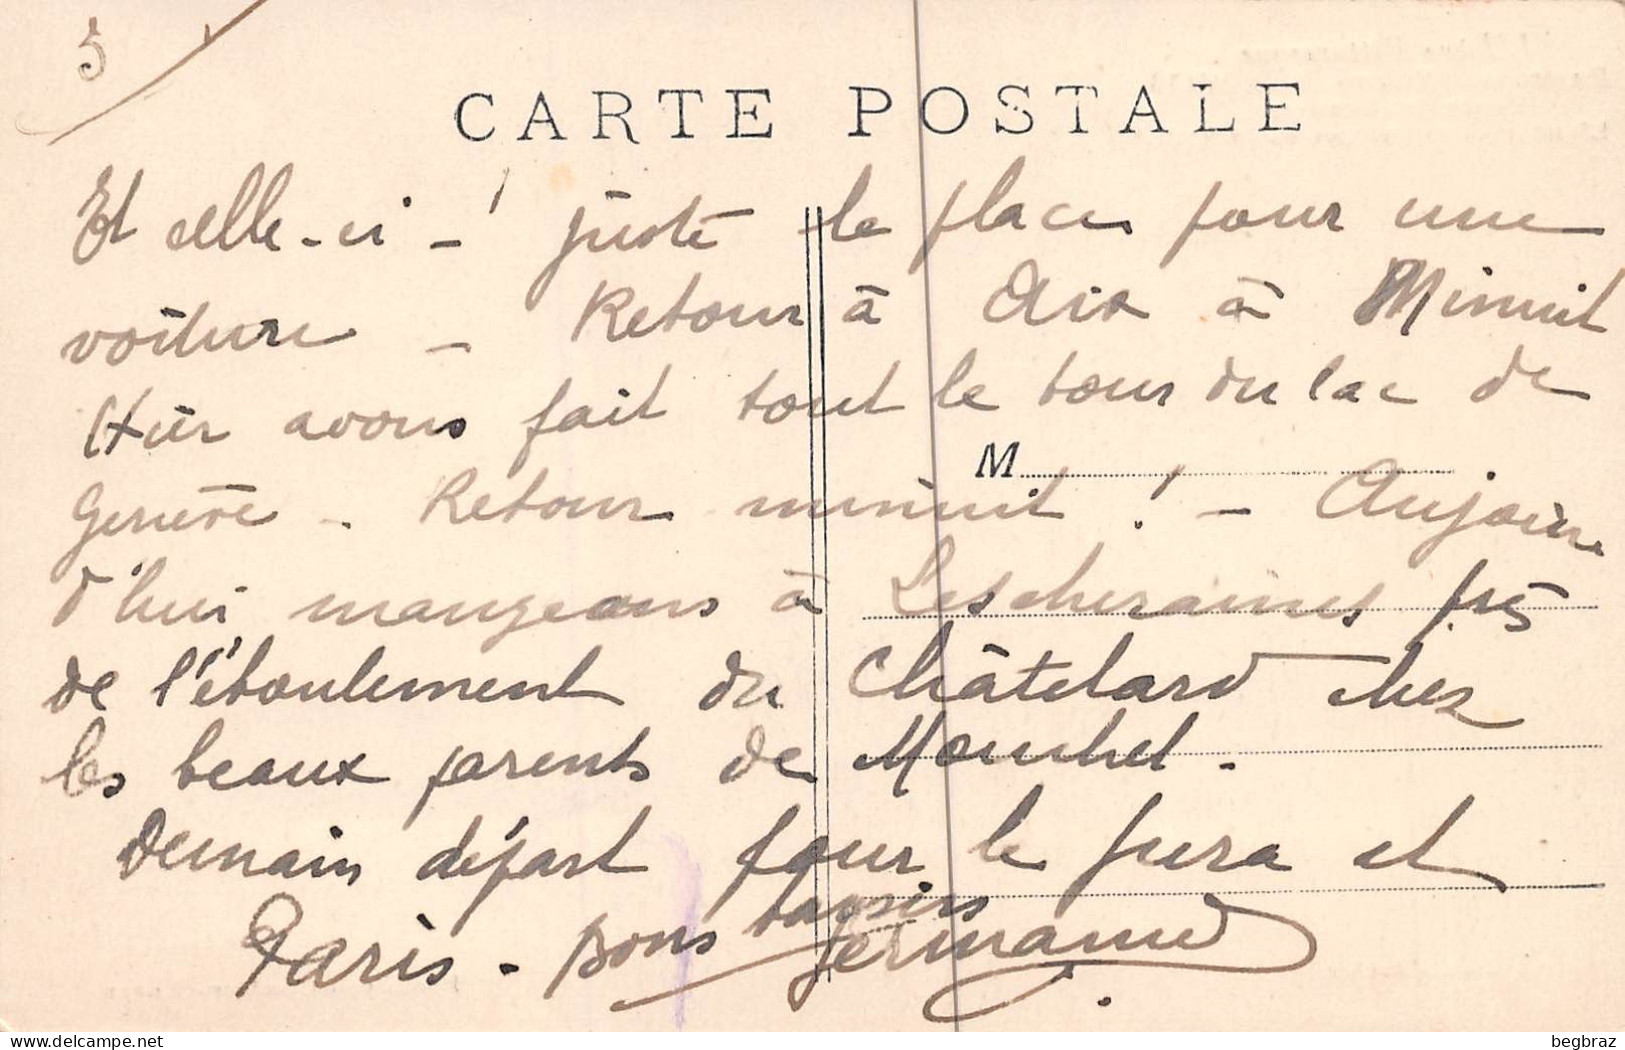 5
CARTE POSTALE
Et celle-ci - ! juste la place pour une
voiture - Retour à Aix à Minuit
Hier avons fait tout le tour du lac de
M
Genève - Retour minuit ! - Aujour
d'hui mangeons à Lescheraines près
de l'éboulement du Châtelard chez
les beaux parents de
Demain départ pour le Jura et
Paris - Bons baisers
Germaine
delcampe.net
begbraz